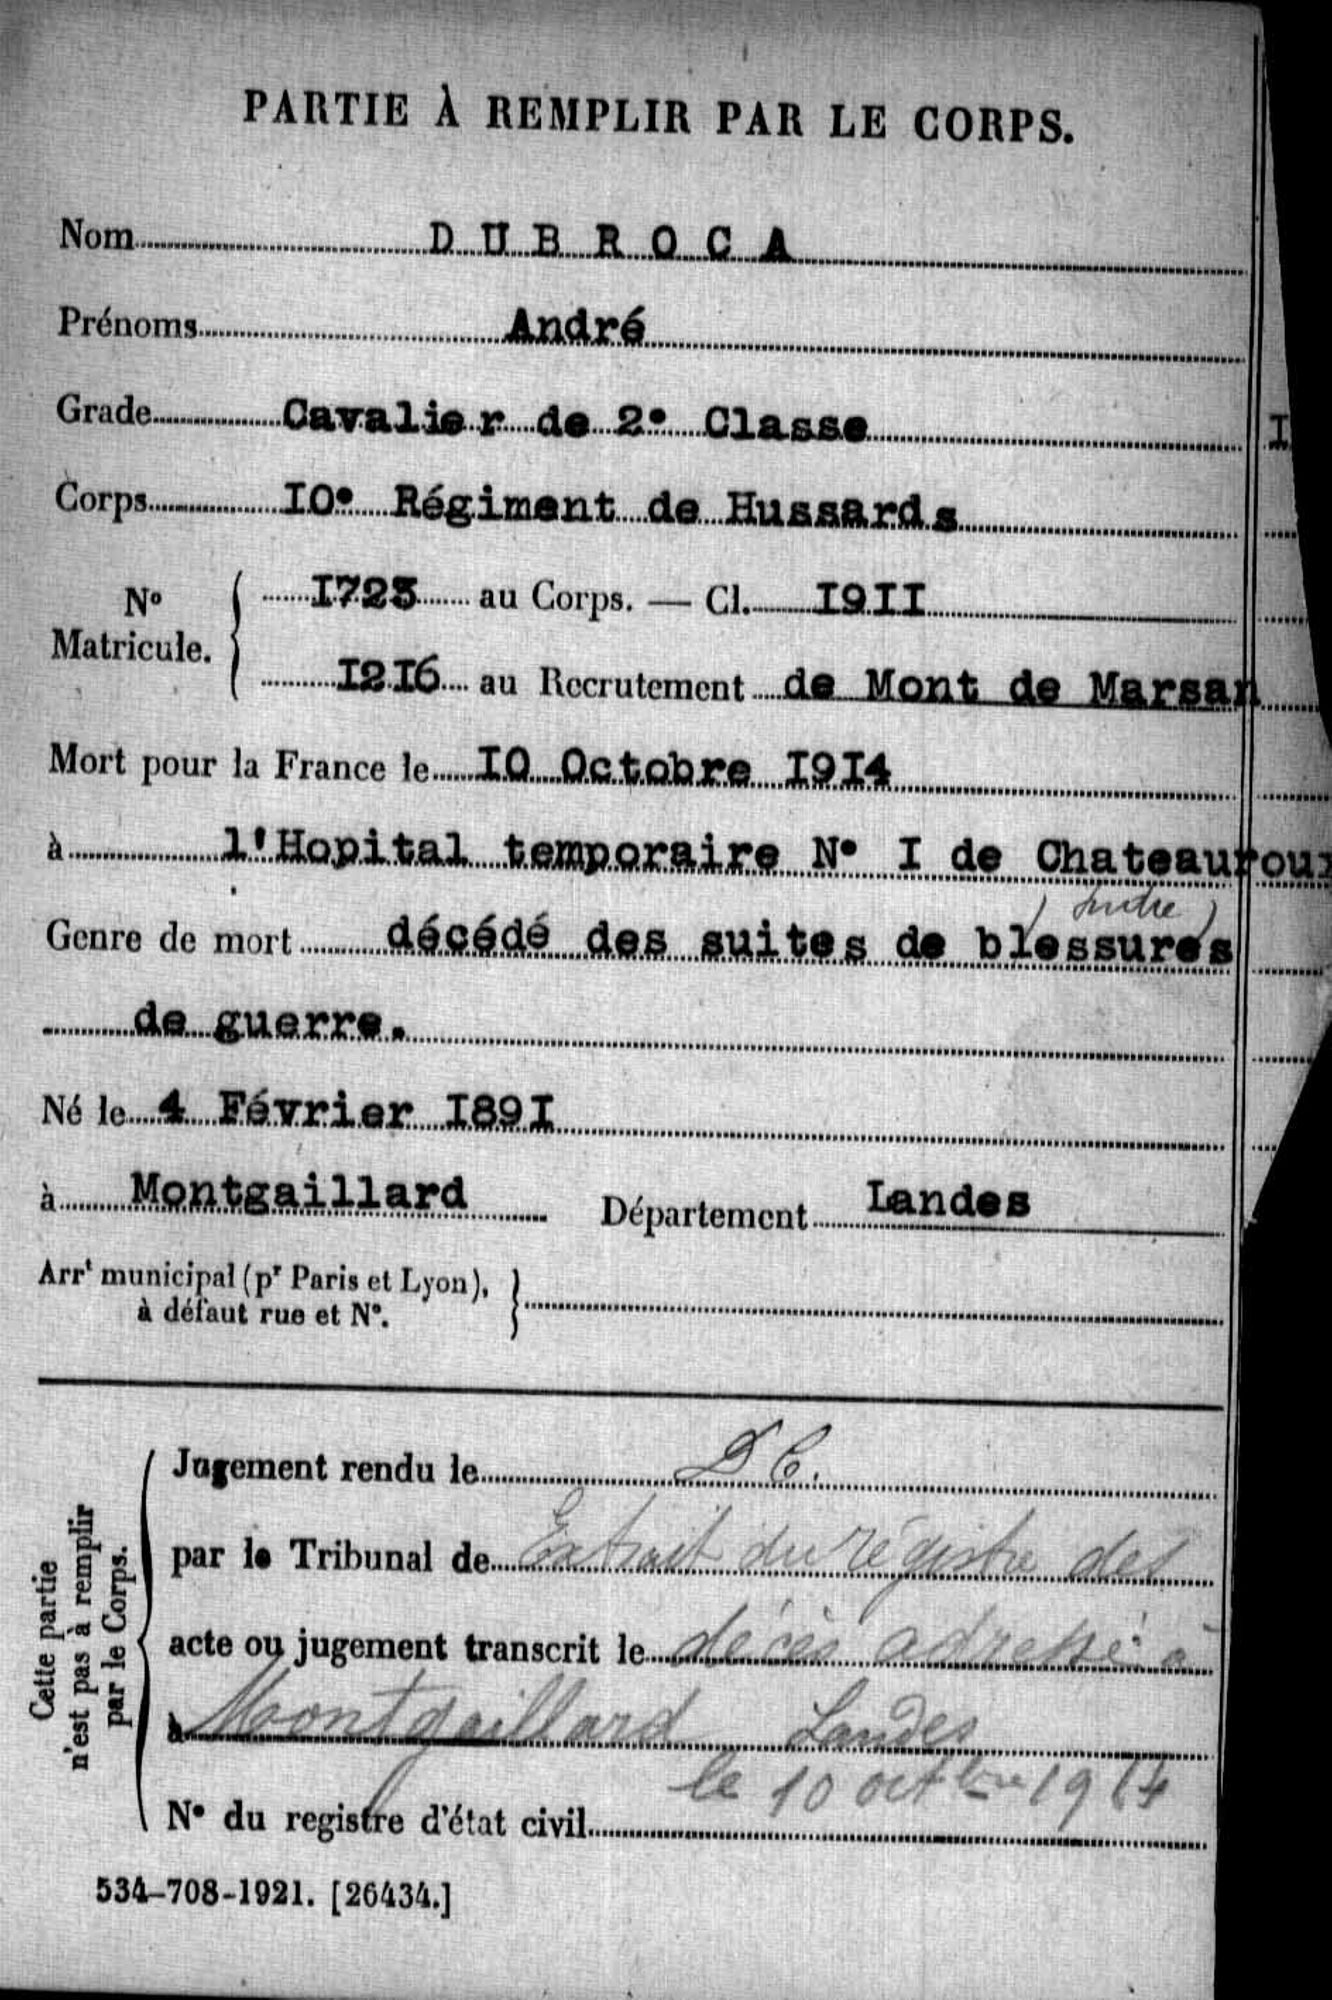 PARTIE À REMPLIR PAR LE CORPS.
Nom DUBROCA
Prénoms André
Grade Cavalier de 2e Classe
Corps IOe Régiment de Hussards
No Matricule. I723 au Corps. — Cl. I9II
I2I6 au Recrutement de Mont de Marsan
Mort pour la France le IO Octobre I9I4
à l'Hopital temporaire No I de Chateauroux
(Indre)
Genre de mort décédé des suites de blessures
de guerre.
Né le 4 Février I89I
à Montgaillard Département Landes
Arrt municipal (pr Paris et Lyon),
à défaut rue et No.
Cette partie
n'est pas à remplir
par le Corps.
Jugement rendu le D C.
par le Tribunal de Extrait du régistre des
acte ou jugement transcrit le décès adressé à
à Montgaillard Landes
le 10 octbre 1914
No du registre d'état civil
534-708-1921. [26434.]